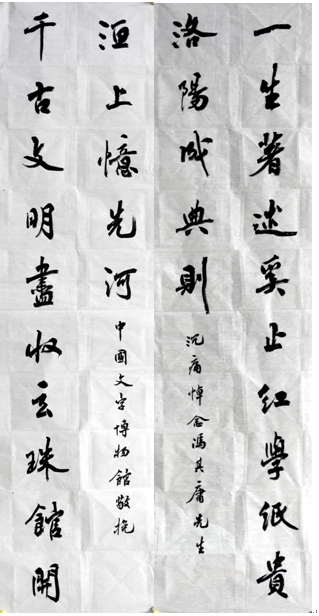 一生著述奚止红學纸貴
洛陽成典則
沉痛悼念馮其庸先生
千古文明盡收玄珠館開
洹上憶先河
中國文字博物館敬挽